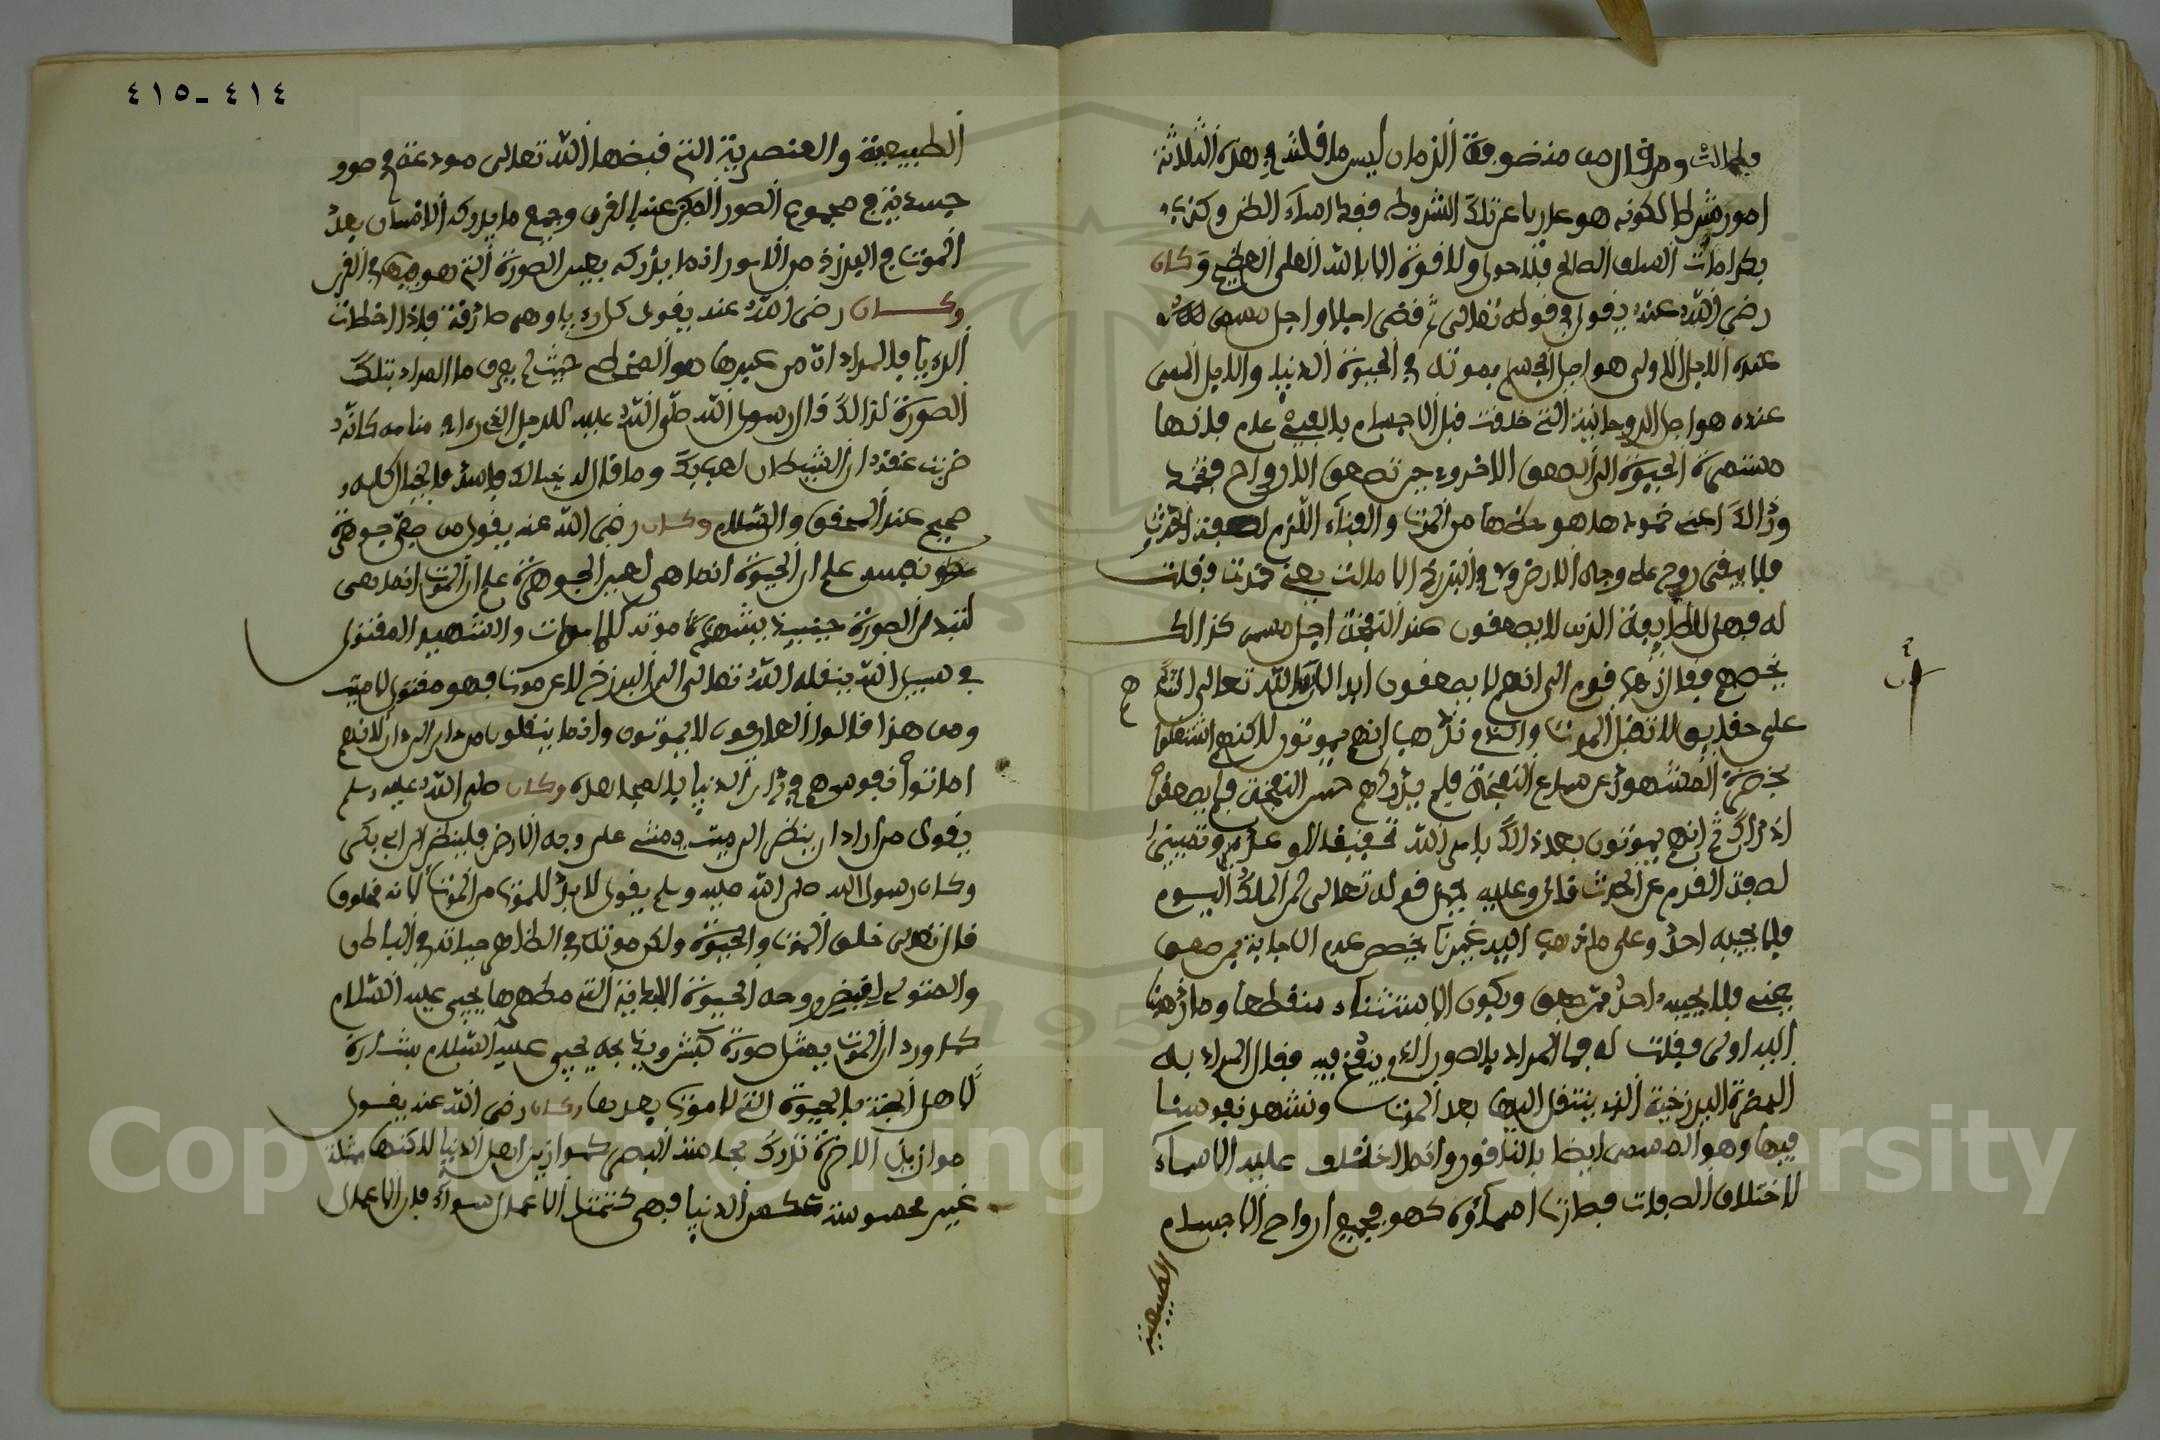 ٤١٤ـ٤١٥
ومن قال من منصوفة الزمان ليس ما قلتم في هذه الثلاثة
امور شرطا لكونه هو عاريا عن تلك الشروط فقد اساء الظن وكذب
بكرامات السلف الصالح فلا حول ولا قوة الا بالله العلي العظيم وكان
رضي الله عنه يقول في قوله تعالى ثم قضى اجلا واجل مسمى
عنده الاجل الاولى هو اجل الجسم بموته في الحيوة الدنيا والاجل المسمى
عنده هو اجل الروحانية التي خلقت قبل الاجسام بالفي عام فانها
مستصحبة الحيوة الى الصعق الاخروي حين تصعق الارواح فتخمد
وذالك اعني خمودها هو حظها من الموت والفناء اللازم لصفة الحدث
فلا يبقى روح على وجه الارض ولا في البرزخ الا مات يعني خمدت فقلت
له فهل للطايفة الذين لا يصعقون عند النفخة اجل مسمى كذالك
يخصهم فقال ذهب قوم الى انهم لا يصعقون ابدا لان الله تعالى انشأهم
على حقايق لا تقبل الموت والذي نذهب انهم يموتون لاكنهم اشتغلوا
بحضرة الشهود عن سماع النفخة فلم يدركهم حس النفخة فلم يصعقوا
اذ ذاك ثم انهم يموتون بعد ذالك بامر الله تحقيقا لوعده وتمييزا
لصفة القدم عن الحدث قال وعليه يحمل قوله تعالى لمن الملك اليوم
فلا يجيبه احد وعلى ما ذهب اليه غيرنا يخص عدم الاجابة بمن صعق
يعني فلا يجيبه احد ممن صعق ويكون الاستثناء منقطعا وما ذهبنا
اليه اولى فقلت له فما المراد بالصور الذي ينفخ فيه فقال المراد به
الحضرة البرزخية الذي ينتقل اليها بعد الموت ونشهد نفوسنا
فيها وهو المسمى ايضا بالناقور وانما اختلف عليه الاسماء
لاختلاف الصفات فصارت اسماؤه كهو فجميع ارواح الاجسام
الطبيعية
الطبيعية والعنصرية التي قبضها الله تعالى مودعة في صور
جسدية في مجموع الصور المكني عنه بالقرن وجميع ما يدركه الانسان بعد
الموت في البرزخ من الامور انما يدركه بعين الصورة التي هو فيها في القرن
وكان رضي الله عنه يقول كل رءيا وهي صادقة فاذا اخطات
الرءيا فالمراد ان من عبرها هو المخطي حيث لم يعرف ما المراد بتلك
الصورة لذالك قال رسول الله صلى الله عليه للرجل الذي رءا في منامه كانه
ضربت عنقه ان الشيطان لعب بك وما قال له خيالك فاسد فالخيال كله
صحيح عند المحقق والسلام وكان رضي الله عنه يقول من صح جوهره
نفسه علم ان الحيوة انما هي لعين الجوهر علم ان الموت انما هي
لتبدل الصورة حينئذ يشهد موته كلا موت والشهيد المقتول
في سبيل الله ينقله الله تعالى الى البرزخ لا عن موت فهو مقتول لا ميت
ومن هذا قالوا العارفون لا يموتون وانما ينقلون من دار الى دار لانهم
اماتوا نفوسهم في دار الدنيا بالمجاهدة وكان صلى الله عليه وسلم
يقول من اراد ان ينظر الى ميت يمشي على وجه الارض فلينظر الى ابي بكر
وكان رسول الله صلى الله عليه وسلم يقول لا بد للموت من الموت لانه مخلوق
قال تعالى خلق الموت والحيوة ولكن موته في الظاهر حياته في الباطن
والمتولي لقبض روحه الحيوة الابدية التي مظهرها يحيى عليه السلام
كما ورد ان الموت يمثل صورة كبش ويذبحه يحيى عليه السلام بشارة
لاهل الجنة بالحيوة التي لا موت بعدها وكان رضي الله عنه يقول
موازين الاخرة تدرك بحاسة البصر كموازين اهل الدنيا لاكنها ممثلة
غير محسوسة عكس الدنيا فهي كتمثل الاعمال سواء فان الاعمال